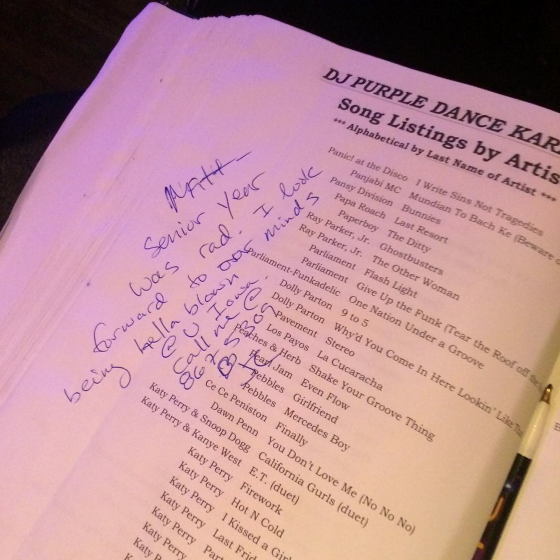 DJ PURPLE DANCE KAR
Song Listings by Artis
*** Alphabetical by Last Name of Artist ***
Panic! at the Disco I Write Sins Not Tragedies
Panjabi MC Mundian To Bach Ke (Beware o
Pansy Division Bunnies
Papa Roach Last Resort
Paperboy The Ditty
Ray Parker, Jr. Ghostbusters
Ray Parker, Jr. The Other Woman
Parliament Flash Light
Parliament Give Up the Funk (Tear the Roof off
Parliament-Funkadelic One Nation Under a Groove
Dolly Parton 9 to 5
Dolly Parton Why'd You Come In Here Lookin' Like
Pavement Stereo
Los Payos La Cucaracha
Peaches & Herb Shake Your Groove Thing
Pearl Jam Even Flow
Pebbles Girlfriend
Pebbles Mercedes Boy
Ce Ce Peniston Finally
Dawn Penn You Don't Love Me (No No No)
Katy Perry & Snoop Dogg California Gurls (duet)
Katy Perry & Kanye West E.T. (duet)
Katy Perry Firework
Katy Perry Hot N Cold
Katy Perry I Kissed a Girl
Katy Perry Last Frid
Katy Perry Part
Katy Perry
Katy Perry
Matt
Senior Year
was rad. I look
forward to our minds
being hella blown
@ U Iowa.
call me @
8675309